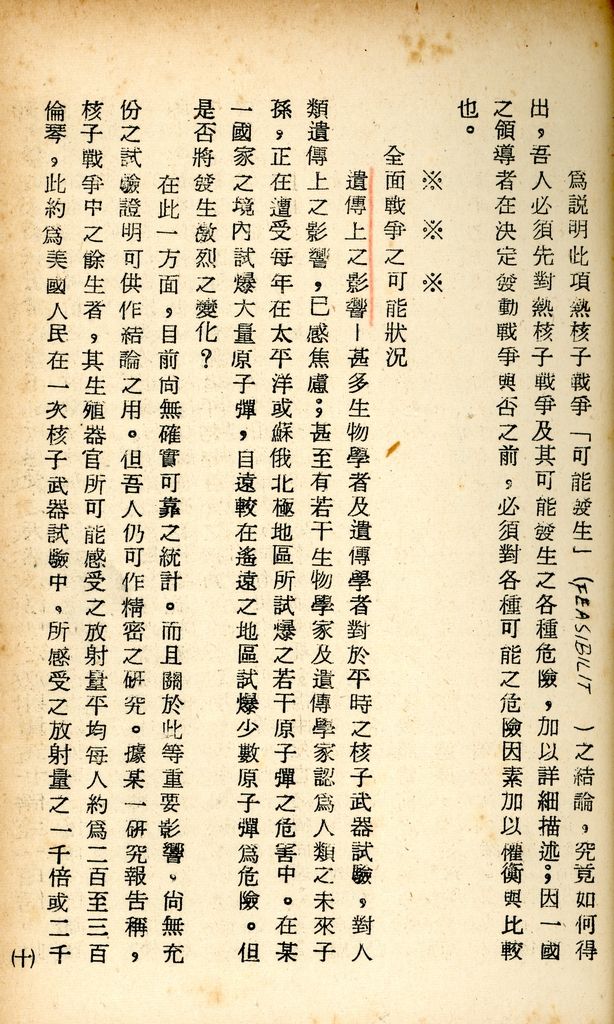 為說明此項熱核子戰爭「可能發生」(FEASIBILIT )之結論，究竟如何得
出，吾人必須先對熱核子戰爭及其可能發生之各種危險，加以詳細描述；因一國
之領導者在決定發動戰爭與否之前，必須對各種可能之危險因素加以權衡與比較
也。
※ ※ ※
全面戰爭之可能狀況
遺傳上之影響－甚多生物學者及遺傳學者對於平時之核子武器試驗，對人
類遺傳上之影響，已感焦慮；甚至有若干生物學家及遺傳學家認為人類之未來子
孫，正在遭受每年在太平洋或蘇俄北極地區所試爆之若干原子彈之危害中。在某
一國家之境內試爆大量原子彈，自遠較在遙遠之地區試爆少數原子彈為危險。但
是否將發生激烈之變化？
在此一方面，目前尚無確實可靠之統計。而且關於此等重要影響，尚無充
份之試驗證明可供作結論之用。但吾人仍可作精密之研究。據某一研究報告稱，
核子戰爭中之餘生者，其生殖器官所可能感受之放射量平均每人約為二百至三百
倫琴，此約為美國人民在一次核子武器試驗中，所感受之放射量之一千倍或二千
(十)